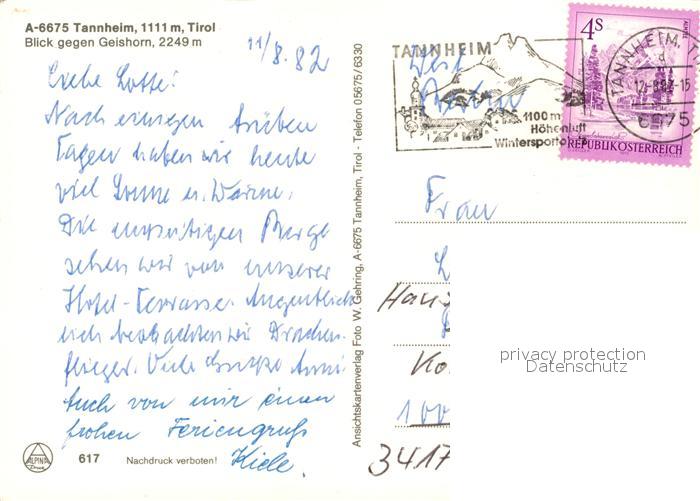 A-6675 Tannheim, 1111 m, Tirol
Blick gegen Geishorn, 2249 m
11/8.82
Liebe Lotte!
Nach einigen trüben
Tagen haben wir heute
viel Sonne u. Wärme.
Die umseitigen Berge
sehen wir von unserer
Hotel-Terrasse. Augenblick-
lich beobachten wir Drachen-
flieger. Viele Grüße Anni
Auch von mir einen
frohen Feriengruß
Kiele.
ALPINA
Druck
617
Nachdruck verboten!
Ansichtskartenverlag Foto W. Gehring, A-6675 Tannheim, Tirol - Telefon 05675/6330
TANNHEIM
1100 m
Höhenluft
Wintersportort
4S
REPUBLIK ÖSTERREICH
TANNHEIM,
6675
West
Berlin
Frau
L
Haus
Ko
100
3417
privacy protection
Datenschutz